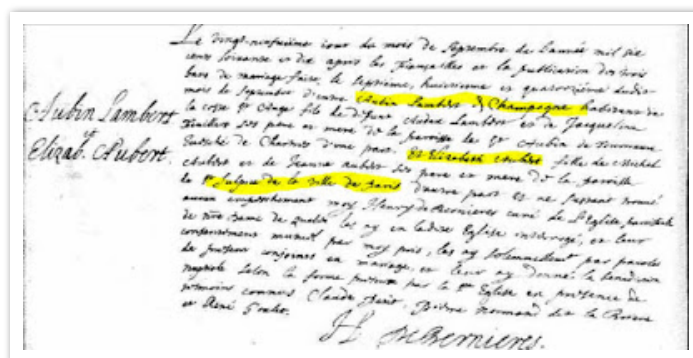 Le vingt-neufuiesme iour du mois de septembre de l'année mil six
cens soixante et dix apres les fiançailles et la publication des trois
bans de mariage faite, le septiesme, huictiesme et quatorziesme dudit
mois de septembre d'entre Aubin Lambert dit Champagne habitant de
la coste St Ange fils de deffunt Lambert et de Jacqueline
ses pere et mere de la paroisse de St Aubin de
de Chartres d'une part, Et Elizabeth Aubert fille de Michel
Aubert et de Jeanne Aubert ses pere et mere de la paroisse
de St Sulpice de la ville de paris d'autre part et ne s'estant trouué
aucun empeschement moy Henry de Bernieres curé de l'Eglise paroissiale
de nre Dame de Quebec les ay en ladite Eglise interrogé, et leur
consentement mutuel par moy pris, les ay solemnellement par paroles
de present conjoints en mariage, et leur ay donné la benediction
nuptiale selon la forme prescrite par la Ste Eglise en presence de
temoins connus Claude Pierre Normand de la Briere
et René
Aubin Lambert
et
Elizab. Aubert.
H de Bernieres.